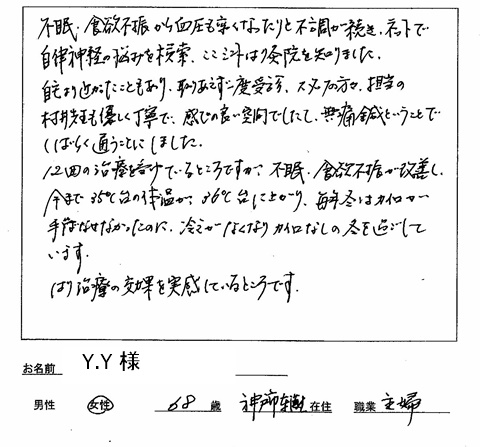 不眠、食欲不振から血圧も高くなったりと不調が続き、ネットで
自律神経の悩みを検索、ここミントはり灸院を知りました。
自宅より近かったこともあり、取りあえず一度受診、スタッフの方や、担当の
村井先生も優しく丁寧で、感じの良い空間でしたし、無痛鍼ということで
しばらく通うことにしました。
12回の治療を受けているところですが、不眠、食欲不振が改善し、
今まで35℃台の体温が、36℃台に上がり、毎年冬はカイロが
手放なせなかったのに、冷えがなくなりカイロなしの冬を過ごして
います。
はり治療の効果を実感しているところです。
お名前 Y.Y 様
男性 女性 68 歳 神戸市東灘 在住 職業 主婦